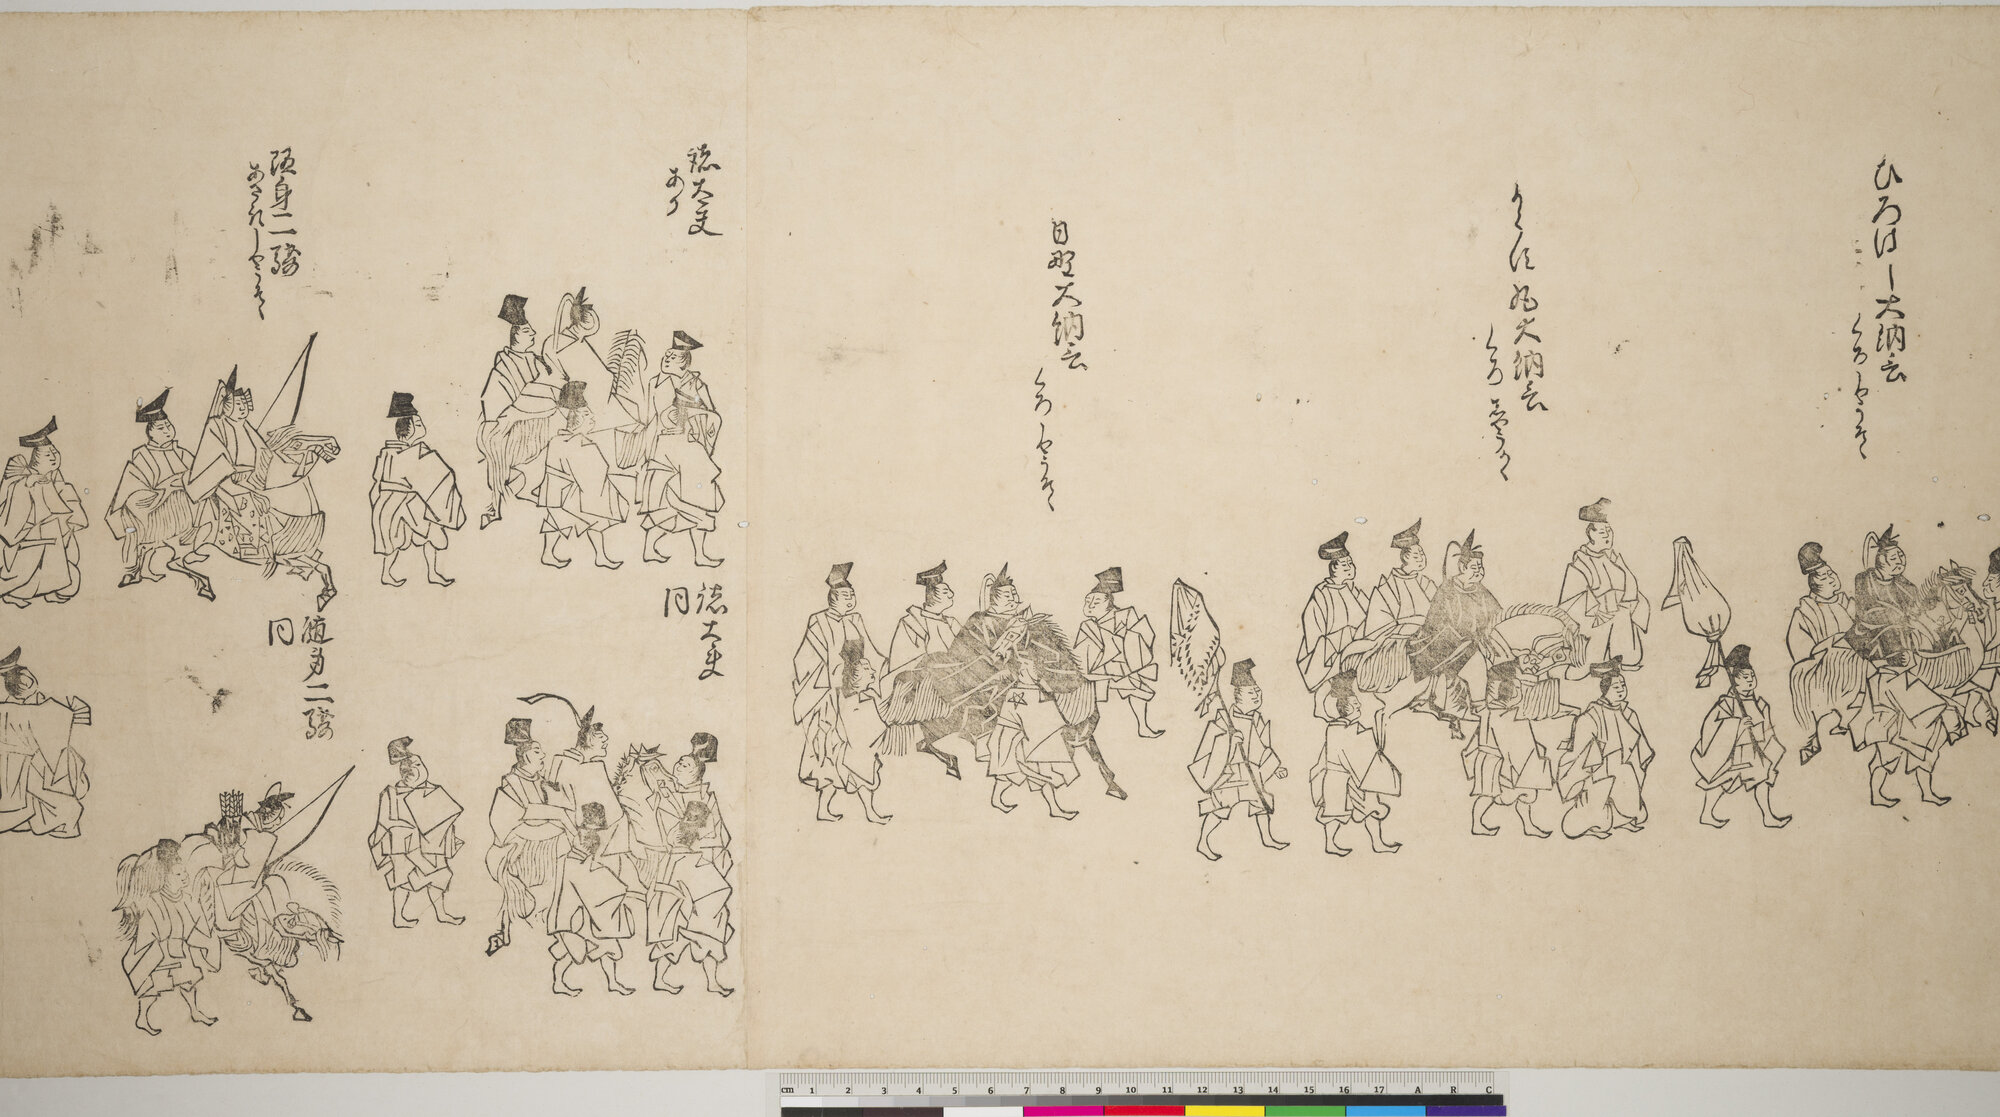 ひろはし大納言
くろしやうそく
からす丸大納言
くろしやうそく
日野大納言
くろしやうそく
諸大夫
あか
諸大夫
同
随身二騎
随身二騎
同
cm 1 2 3 4 5 6 7 8 9 10 11 12 13 14 15 16 17 A R C